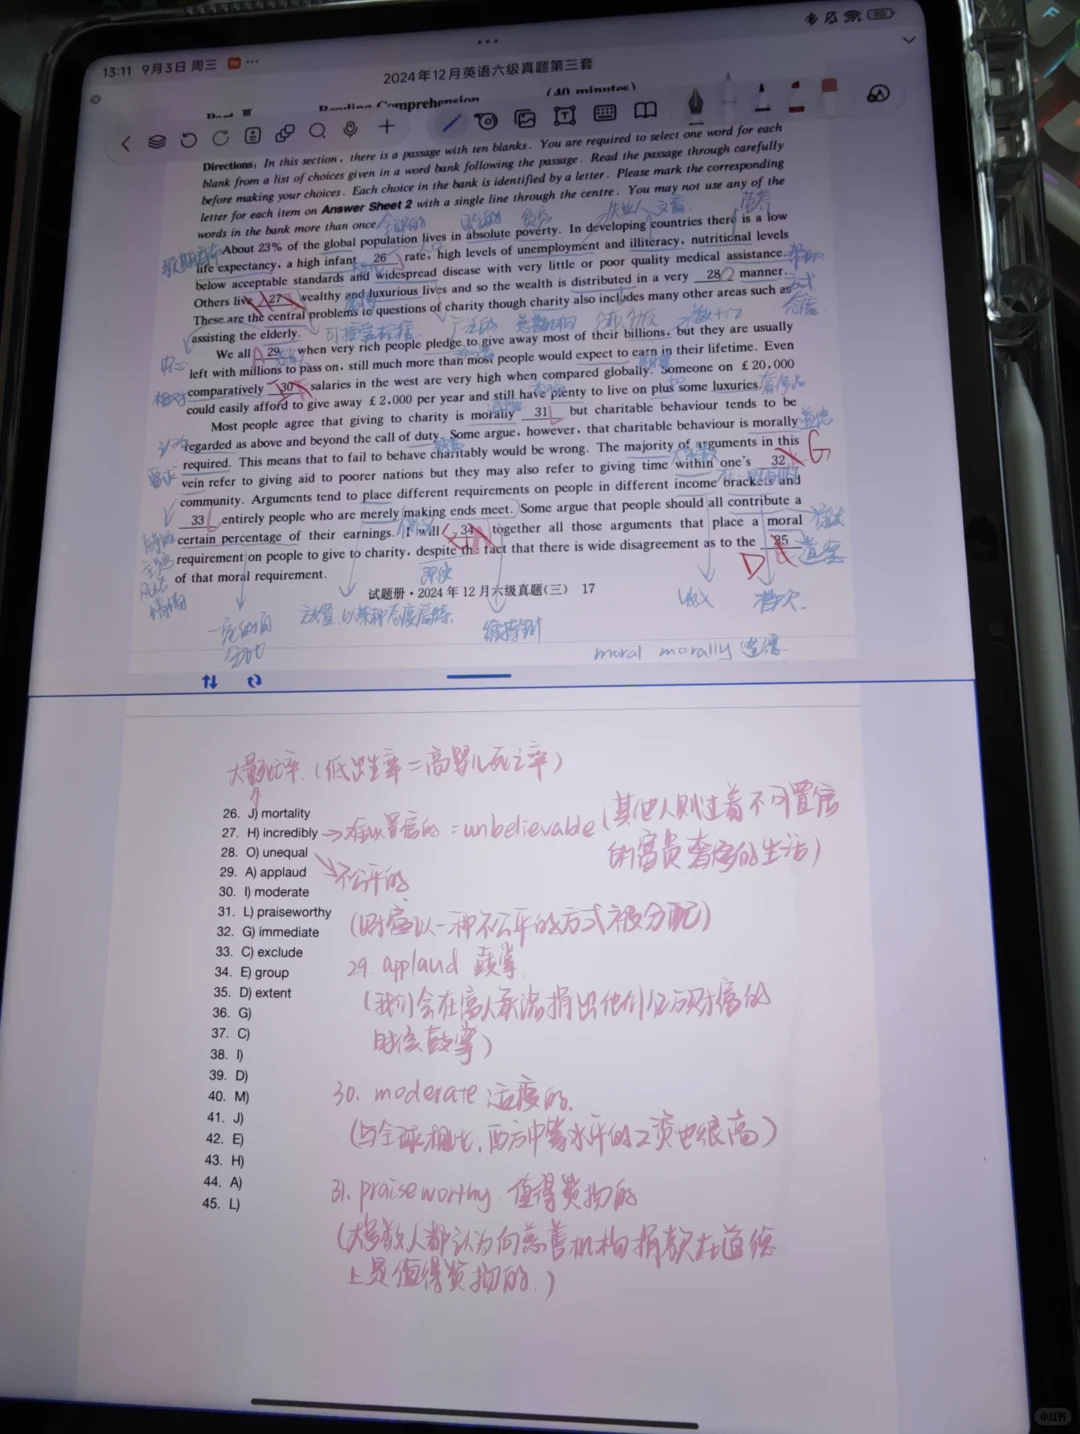 13:11 9月3日 周三
90
2024年12月英语六级真题第三套
Reading Comprehension (40 minutes)
Directions: In this section, there is a passage with ten blanks. You are required to select one word for each
blank from a list of choices given in a word bank following the passage. Read the passage through carefully
before making your choices. Each choice in the bank is identified by a letter. Please mark the corresponding
letter for each item on Answer Sheet 2 with a single line through the centre. You may not use any of the
words in the bank more than once.
About 23% of the global population lives in absolute poverty. In developing countries there is a low
life expectancy, a high infant 26 rate, high levels of unemployment and illiteracy, nutritional levels
below acceptable standards and widespread disease with very little or poor quality medical assistance.
Others live 27 wealthy and luxurious lives and so the wealth is distributed in a very 28 manner.
These are the central problems in questions of charity though charity also includes many other areas such as
assisting the elderly.
We all A 29 when very rich people pledge to give away most of their billions, but they are usually
left with millions to pass on, still much more than most people would expect to earn in their lifetime. Even
comparatively 30 salaries in the west are very high when compared globally. Someone on £20,000
could easily afford to give away £2,000 per year and still have plenty to live on plus some luxuries.
Most people agree that giving to charity is morally 31 but charitable behaviour tends to be
regarded as above and beyond the call of duty. Some argue, however, that charitable behaviour is morally
required. This means that to fail to behave charitably would be wrong. The majority of arguments in this
vein refer to giving aid to poorer nations but they may also refer to giving time within one's 32 G
community. Arguments tend to place different requirements on people in different income brackets and
33 entirely people who are merely making ends meet. Some argue that people should all contribute a
certain percentage of their earnings. I will 34 together all those arguments that place a moral
requirement on people to give to charity, despite the fact that there is wide disagreement as to the 35
D
of that moral requirement.
试题册·2024年12月六级真题(三) 17
moral morally 道德
(低出生率=高婴儿死亡率)
26. J) mortality
27. H) incredibly → 难以置信的 = unbelievable (其他人则过着不可置信
的富贵奢侈的生活)
28. O) unequal
不公平的
29. A) applaud
30. I) moderate
31. L) praiseworthy
(财富以一种不公平的方式被分配)
32. G) immediate
33. C) exclude
29. applaud 鼓掌
34. E) group
35. D) extent
(我们会在富人承诺捐出他们亿万财富的
时候鼓掌)
36. G)
37. C)
38. I)
39. D)
40. M)
30. moderate 适度的.
41. J)
(与全球相比,西方中等水平的工资也很高)
42. E)
43. H)
44. A)
31. praiseworthy 值得赞扬的
45. L)
(大多数人都认为向慈善机构捐款在道德
上是值得赞扬的.)
小红书